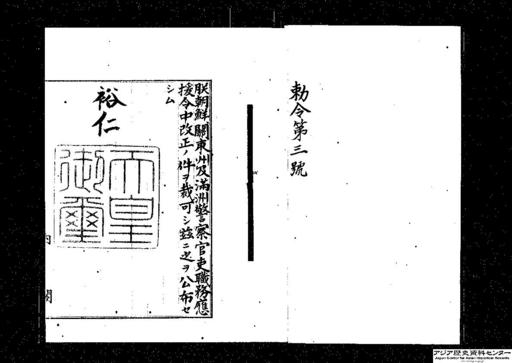 勅令第三號
朕朝鮮關東州及滿洲警察官吏職務應
援令中改正ノ件ヲ裁可シ玆ニ之ヲ公布セ
シム
裕仁
天皇
御璽
内閣
アジア歴史資料センター
Japan Center for Asian Historical Records